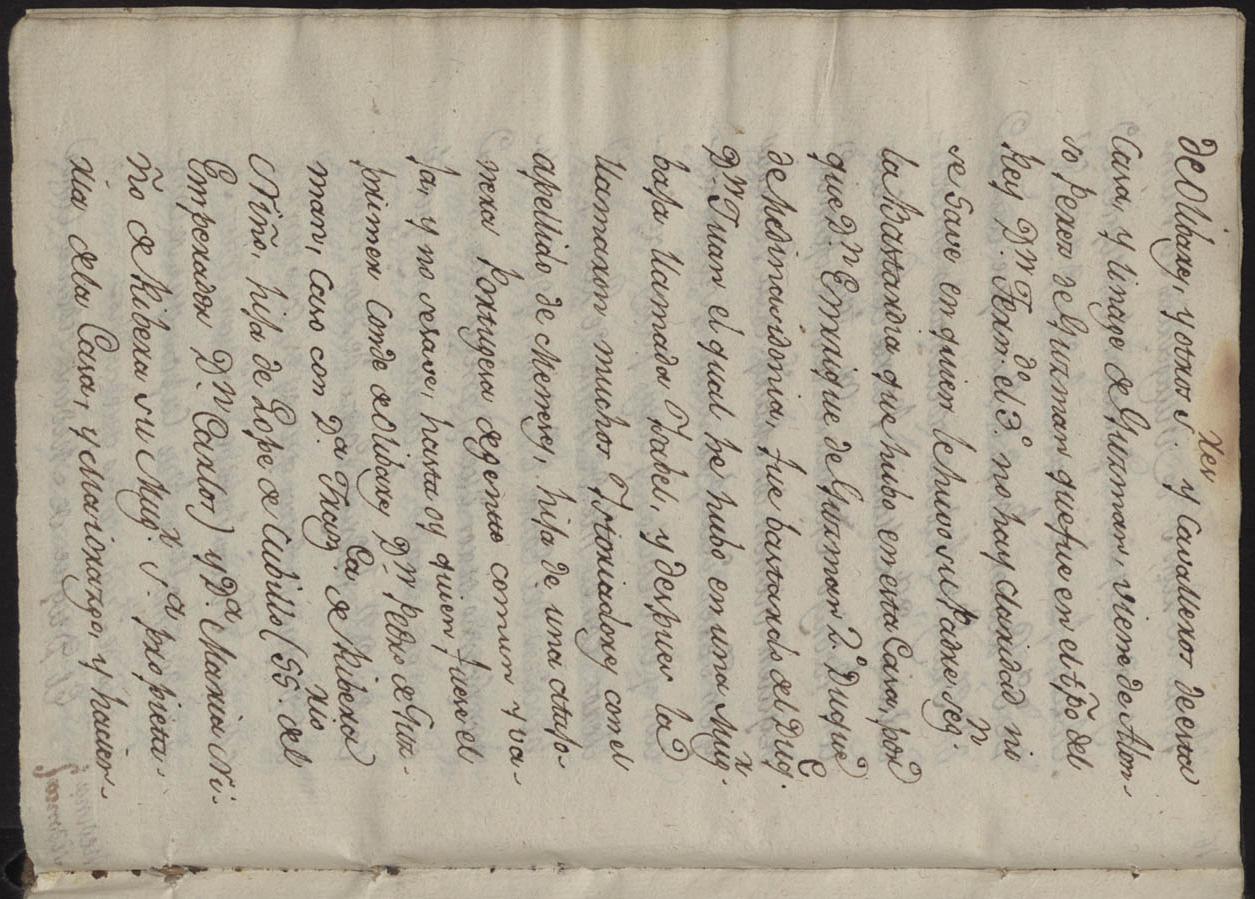 de Olibares, y otros S.res y Cavalleros de esta
Casa, y linage de Guzman, viene de Alon-
so Perez de Guzman que fue en el tpõ del
Rey D.n Fern.do el 3.º no hay claridad ni
se save en quien le huvo su Padre seg.n
la Bastardia que hubo en esta Casa, por
que D.n Enrique de Guzman 2.º Duque
de Medinasidonia, fue bastardo del Duq.e
D.n Juan el qual he hubo en una Mug.r
baja llamada Isabel, y despues la
llamaron muchos Istoriadores con el
apellido de Meneses, hija de una
nera Portugesa de gente comun y va-
ja, y no se save, hasta oy quien fuese el
primer Conde de Olibares D.n Pedro de Guz-
man, Caso con D.a Fran.ca de Ribera
Niño, hija de Lope de Cudillo (SS.rio del
Emperador D.n Carlos) y D.a Maria Ni-
ño de Ribera su Mug.r S.a propieta-
ria de la Casa, y Maiorazgo, y hacien-